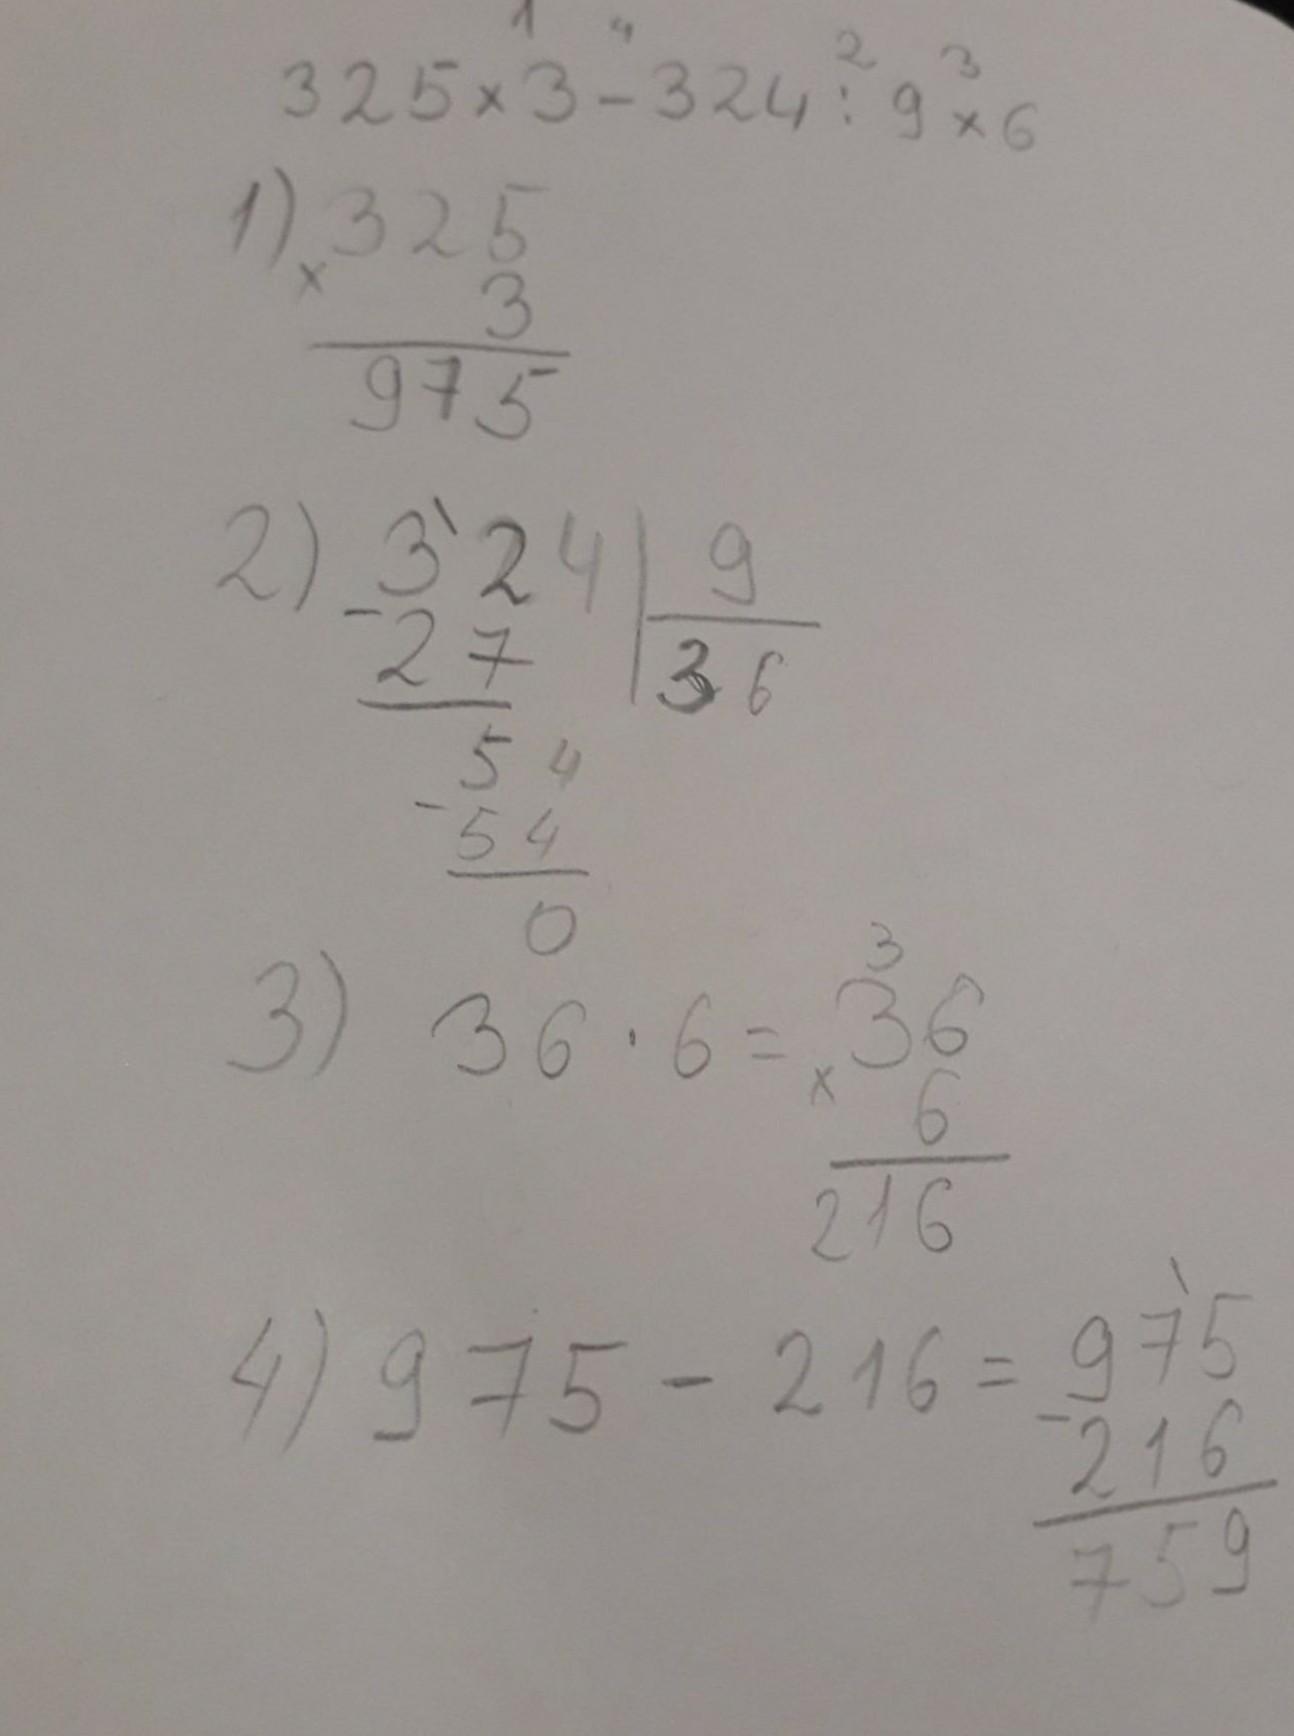 1 4 2 3
325×3-324:9×6
1) 325
× 3
975
2) 324 9
-27 36
54
-54
0
3
3) 36·6= 36
× 6
216
4) 975-216= 975
-216
759